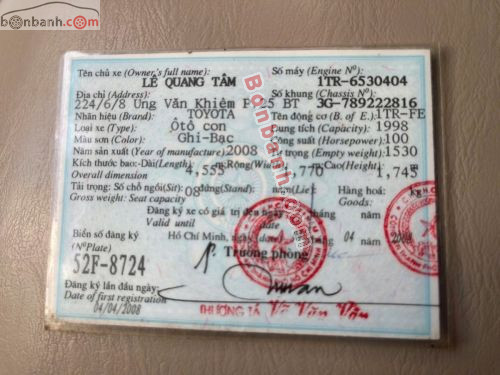 bonbanh.com
Tên chủ xe (Owner's full name): Số máy (Engine Nº):
LÊ QUANG TÂM 1TR-6530404
Địa chỉ (Address): Số khung (Chassis Nº):
224/6/8 Ung Văn Khiêm P25 BT 3G-789222816
Nhãn hiệu (Brand): TOYOTA Tên động cơ (B. of E.): 1TR-FE
Loại xe (Type): Ôtô con Dung tích (Capacity): 1998
Màu sơn (Color): Ghi-Bạc Công suất (Horsepower): 100
Năm sản xuất (Year of manufacture): 2008 Tự trọng (Empty weight): 1530
Kích thước bao: Dài(Length) 4,555 m Rộng(Width) 1,770 m Cao(Height) 1,745
Overall dimension
Tải trọng: Số chỗ ngồi(Sit): 08 đứng(Stand) nằm(Lie): Hàng hoá: kg
Gross weight: Seat capacity Goods:
Đăng ký xe có giá trị đến ngày tháng năm
Valid until
Biển số đăng ký Hồ Chí Minh, ngày tháng 04 năm 2008
(Nº Plate) Trưởng phòng
52F-8724
Đăng ký lần đầu ngày:
Date of first registration
04/04/2008 THƯỢNG TÁ
Bonbanh.com